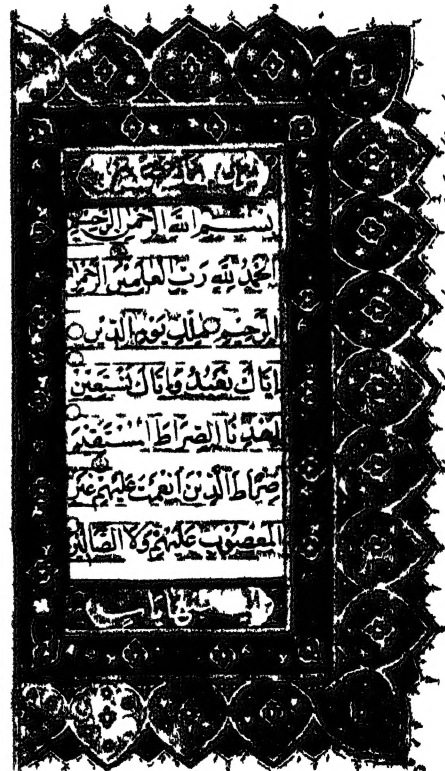 بسم الله الرحمن الرحيم
الحمد لله رب العلمين الرحمن
الرحيم ملك يوم الدين
اياك نعبد واياك نستعين
اهدنا الصراط المستقيم
صراط الذين انعمت عليهم غير
المغضوب عليهم ولا الضالين